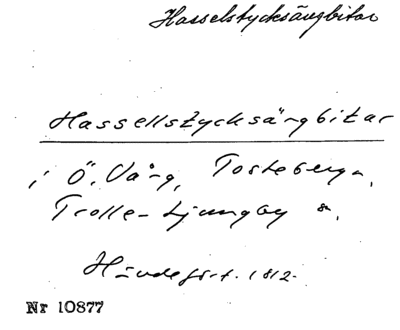 Hasselstycksängbitar
Hassellstycksängbitar
i Ö. Vång, Tosteberga,
Trolle-Ljungby s.,
Häradsört. 1812.
Nr 10877